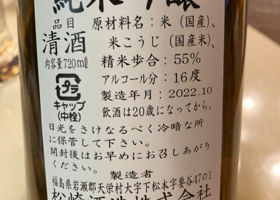 純米吟醸
品目
清酒
内容量720ml
原材料名：米（国産）、
米こうじ（国産米）、
精米歩合：55%
アルコール分：16度
製造年月：2022.10
飲酒は20歳になってから。
プラ
キャップ
（中栓）
日光をさけなるべく冷暗な所
に保管して下さい。
開封後はお早めにお召しあがり
ください。
製造者
福島県岩瀬郡天栄村大字下松本字要谷47の1
松崎酒造株式会社